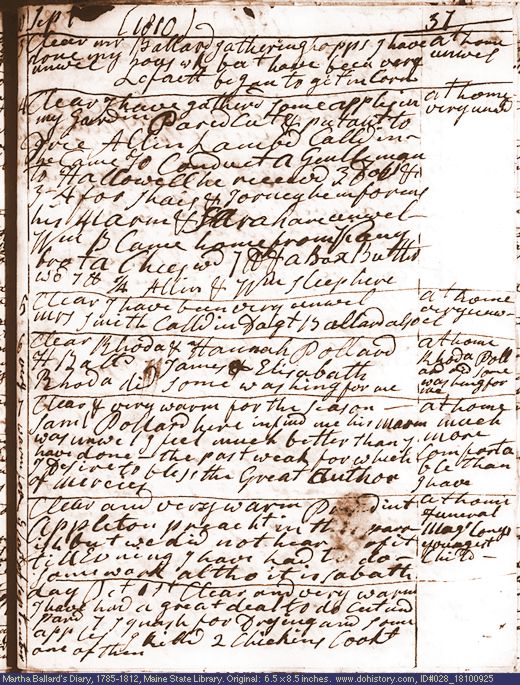 Sept (1810) 37
3 Clear mr Ballard gathering hopps I have at home
done my hous wk but have been very unwel
unwel
Lefaett began to get in Corn
4 Clear I have gatherd some apples in at home
my gardin Pared Cut & put out to very unwel
Drie Allin Lambd Calld in
he came to Conduct a Gentleman
to Hallowell he receved 2 Doll &
for Shoes & informs
his Marm & Sarah are unwel
Wm B Came home from
brot a Chees wd & a Box Butter
Allin & Wm sleep here
5 Clear I have been very unwel at home
mrs Smith Calld in Dagt Ballard also very unwel
6 Clear Rhoda & Hannah Pollard at home
H Bal James & Elisabath Rhoda Poll
Rhoda did some washing for me ard did some
washing for
me
7 Clear & very warm for the season at home
Saml Pollard here informd me his marm much
was unwel I feel much better than I more
have done the past week for which Comforta
I Desire to bless the Great Author ble than
of Mercies I have
Clear and very warm at home
Appleton preacht in this para funeral
ish but we did not hear of it
till Evning I have had to do youngest
some work altho it is sabath Child
day Clear and very warm
I have had a great deal to do Cut and
pard apples & squash for Drying and some
one of them killd 2 Chickins Cookt
Martha Ballard's Diary, 1785-1812, Maine State Library. Original: 6.5 x 8.5 inches. www.dohistory.com, ID#028_18100925